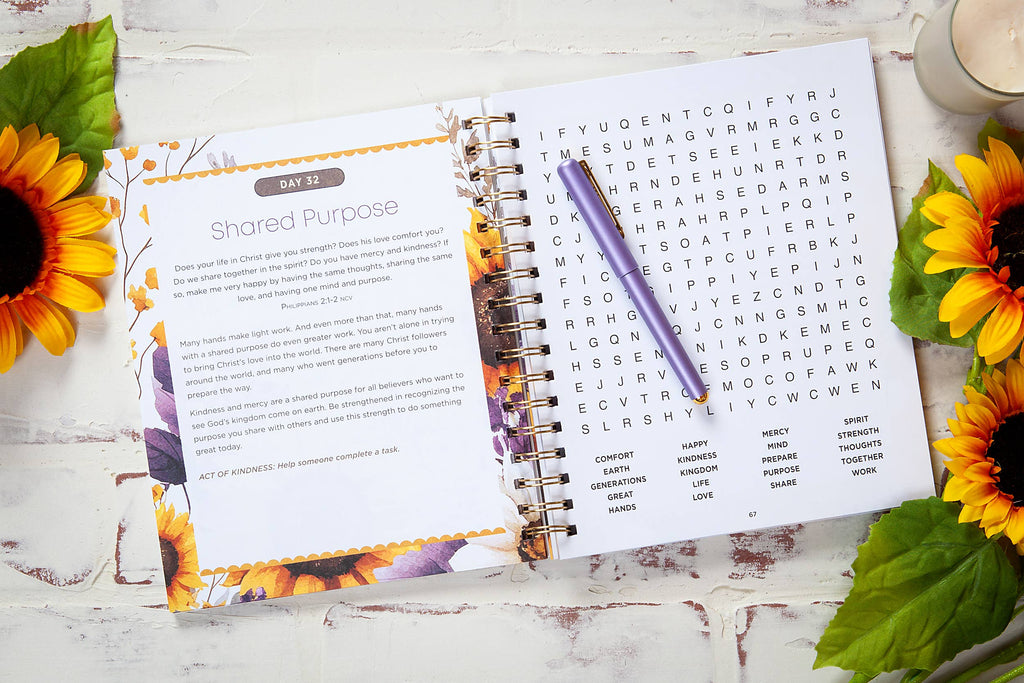 DAY 32
Shared Purpose
Does your life in Christ give you strength? Does his love comfort you?
Do we share together in the spirit? Do you have mercy and kindness? If
so, make me very happy by having the same thoughts, sharing the same
love, and having one mind and purpose.
Philippians 2:1-2 NCV
Many hands make light work. And even more than that, many hands
with a shared purpose do even greater work. You aren't alone in trying
to bring Christ's love into the world. There are many Christ followers
around the world, and many who went generations before you to
prepare the way.
Kindness and mercy are a shared purpose for all believers who want to
see God's kingdom come on earth. Be strengthened in recognizing the
purpose you share with others and use this strength to do something
great today.
ACT OF KINDNESS: Help someone complete a task.
I F Y U Q E N T C Q I F Y R J
T M E S U M A G V R M R G G C
Y T D E T S E E I E K K D
U H R N D E H U N R T D R
D K G E R A H S E D A R M S
C J H R A H R P L P Q I P
M Y Y T S O A T P I E R L P
F I E G T P C U F R B K J
F S O G I P P I Y E P J N
R R H G V J Y E Z C N D T G
L G Q N Q J C N N G S M H C
H S S E N N I K D K E M E C
E J J R V E S O P R U P E
E C V T R C M O C O F A W K
S L R S H Y L I Y C W C W E N
COMFORT
EARTH
GENERATIONS
GREAT
HANDS
HAPPY
KINDNESS
KINGDOM
LIFE
LOVE
MERCY
MIND
PREPARE
PURPOSE
SHARE
SPIRIT
STRENGTH
THOUGHTS
TOGETHER
WORK
67